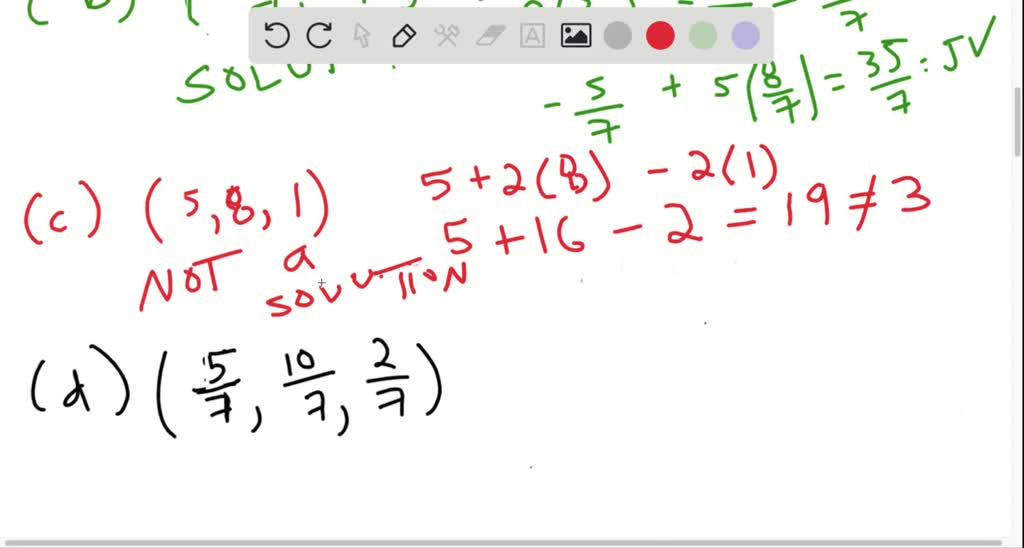 SOLU
- 5/7 + 5(8/7) = 35/7 : 5 ✓
(c) (5,8,1) 5+2(8) - 2(1)
5 +16 - 2 = 19 ≠ 3
NOT a
SOLUTION
(d) (5/7, 10/7, 2/7)